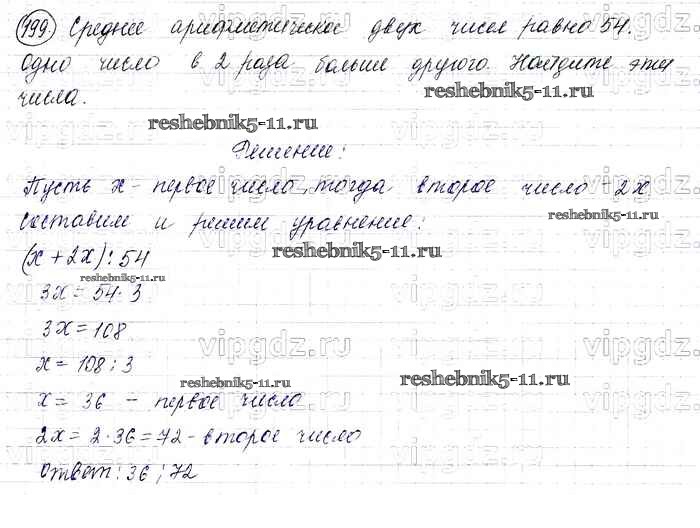 199. Среднее арифметическое двух чисел равно 54.
Одно число в 2 раза больше другого. Найдите эти
числа.
reshebnik5-11.ru
reshebnik5-11.ru
Решение:
vipgdz.ru
vipgdz.ru
Пусть x - первое число, тогда второе число - 2x
reshebnik5-11.ru
составим и решим уравнение:
vipgdz.ru
vipgdz.ru
(x + 2x) : 54
reshebnik5-11.ru
reshebnik5-11.ru
3x = 54 · 3
3x = 108
vipgdz.ru
vipgdz.ru
x = 108 : 3
reshebnik5-11.ru
reshebnik5-11.ru
x = 36 - первое число
vipgdz.ru
vipgdz.ru
2x = 2 · 36 = 72 - второе число
Ответ: 36 ; 72